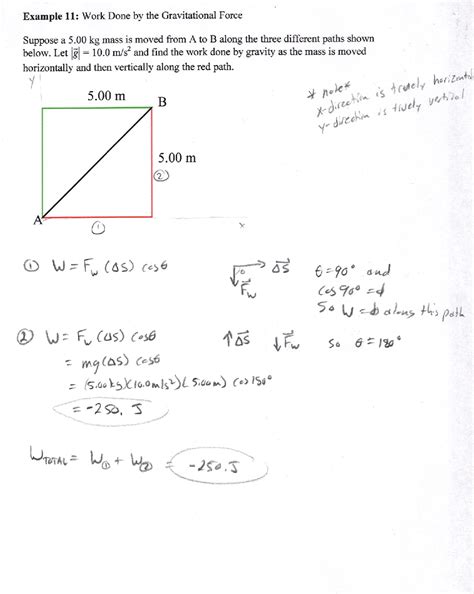 Example 11: Work Done by the Gravitational Force
Suppose a 5.00 kg mass is moved from A to B along the three different paths shown
below. Let |g⃗| = 10.0 m/s² and find the work done by gravity as the mass is moved
horizontally and then vertically along the red path.
* note*
x-direction is truely horizontal
y-direction is truely vertical
y
5.00 m
B
5.00 m
②
A
①
x
① W = Fw (ΔS) cosθ
θ ΔS⃗ θ = 90° and
F⃗w cos 90° = ϕ
So W = ϕ along this path
② W = Fw (ΔS) cosθ ↑ΔS⃗ ↓F⃗w so θ = 180°
= mg(ΔS) cosθ
= (5.00kg)(10.0m/s²)(5.00m) cos 180°
= -250. J
WTOTAL = W① + W② = -250. J